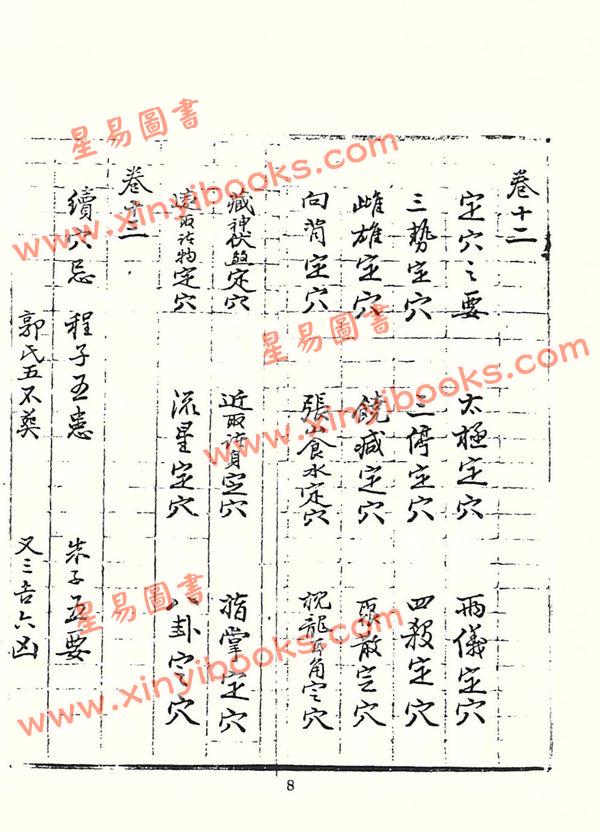 卷十二
定穴之要 太極定穴 兩儀定穴
三勢定穴 三停定穴 四殺定穴
雌雄定穴 饒減定穴 聚散定穴
向背定穴 張山食水定穴 枕龍耳角定穴
藏神伏煞定穴 近取諸身定穴 指掌定穴
遠取諸物定穴 流星定穴 八卦定穴
卷十三
續穴忌 程子五患 朱子五要
郭氏五不葬 又三吉六凶
8
星易圖書
www.xinyibooks.com
星易圖書
www.xinyibooks.com
星易圖書
www.xinyibooks.com